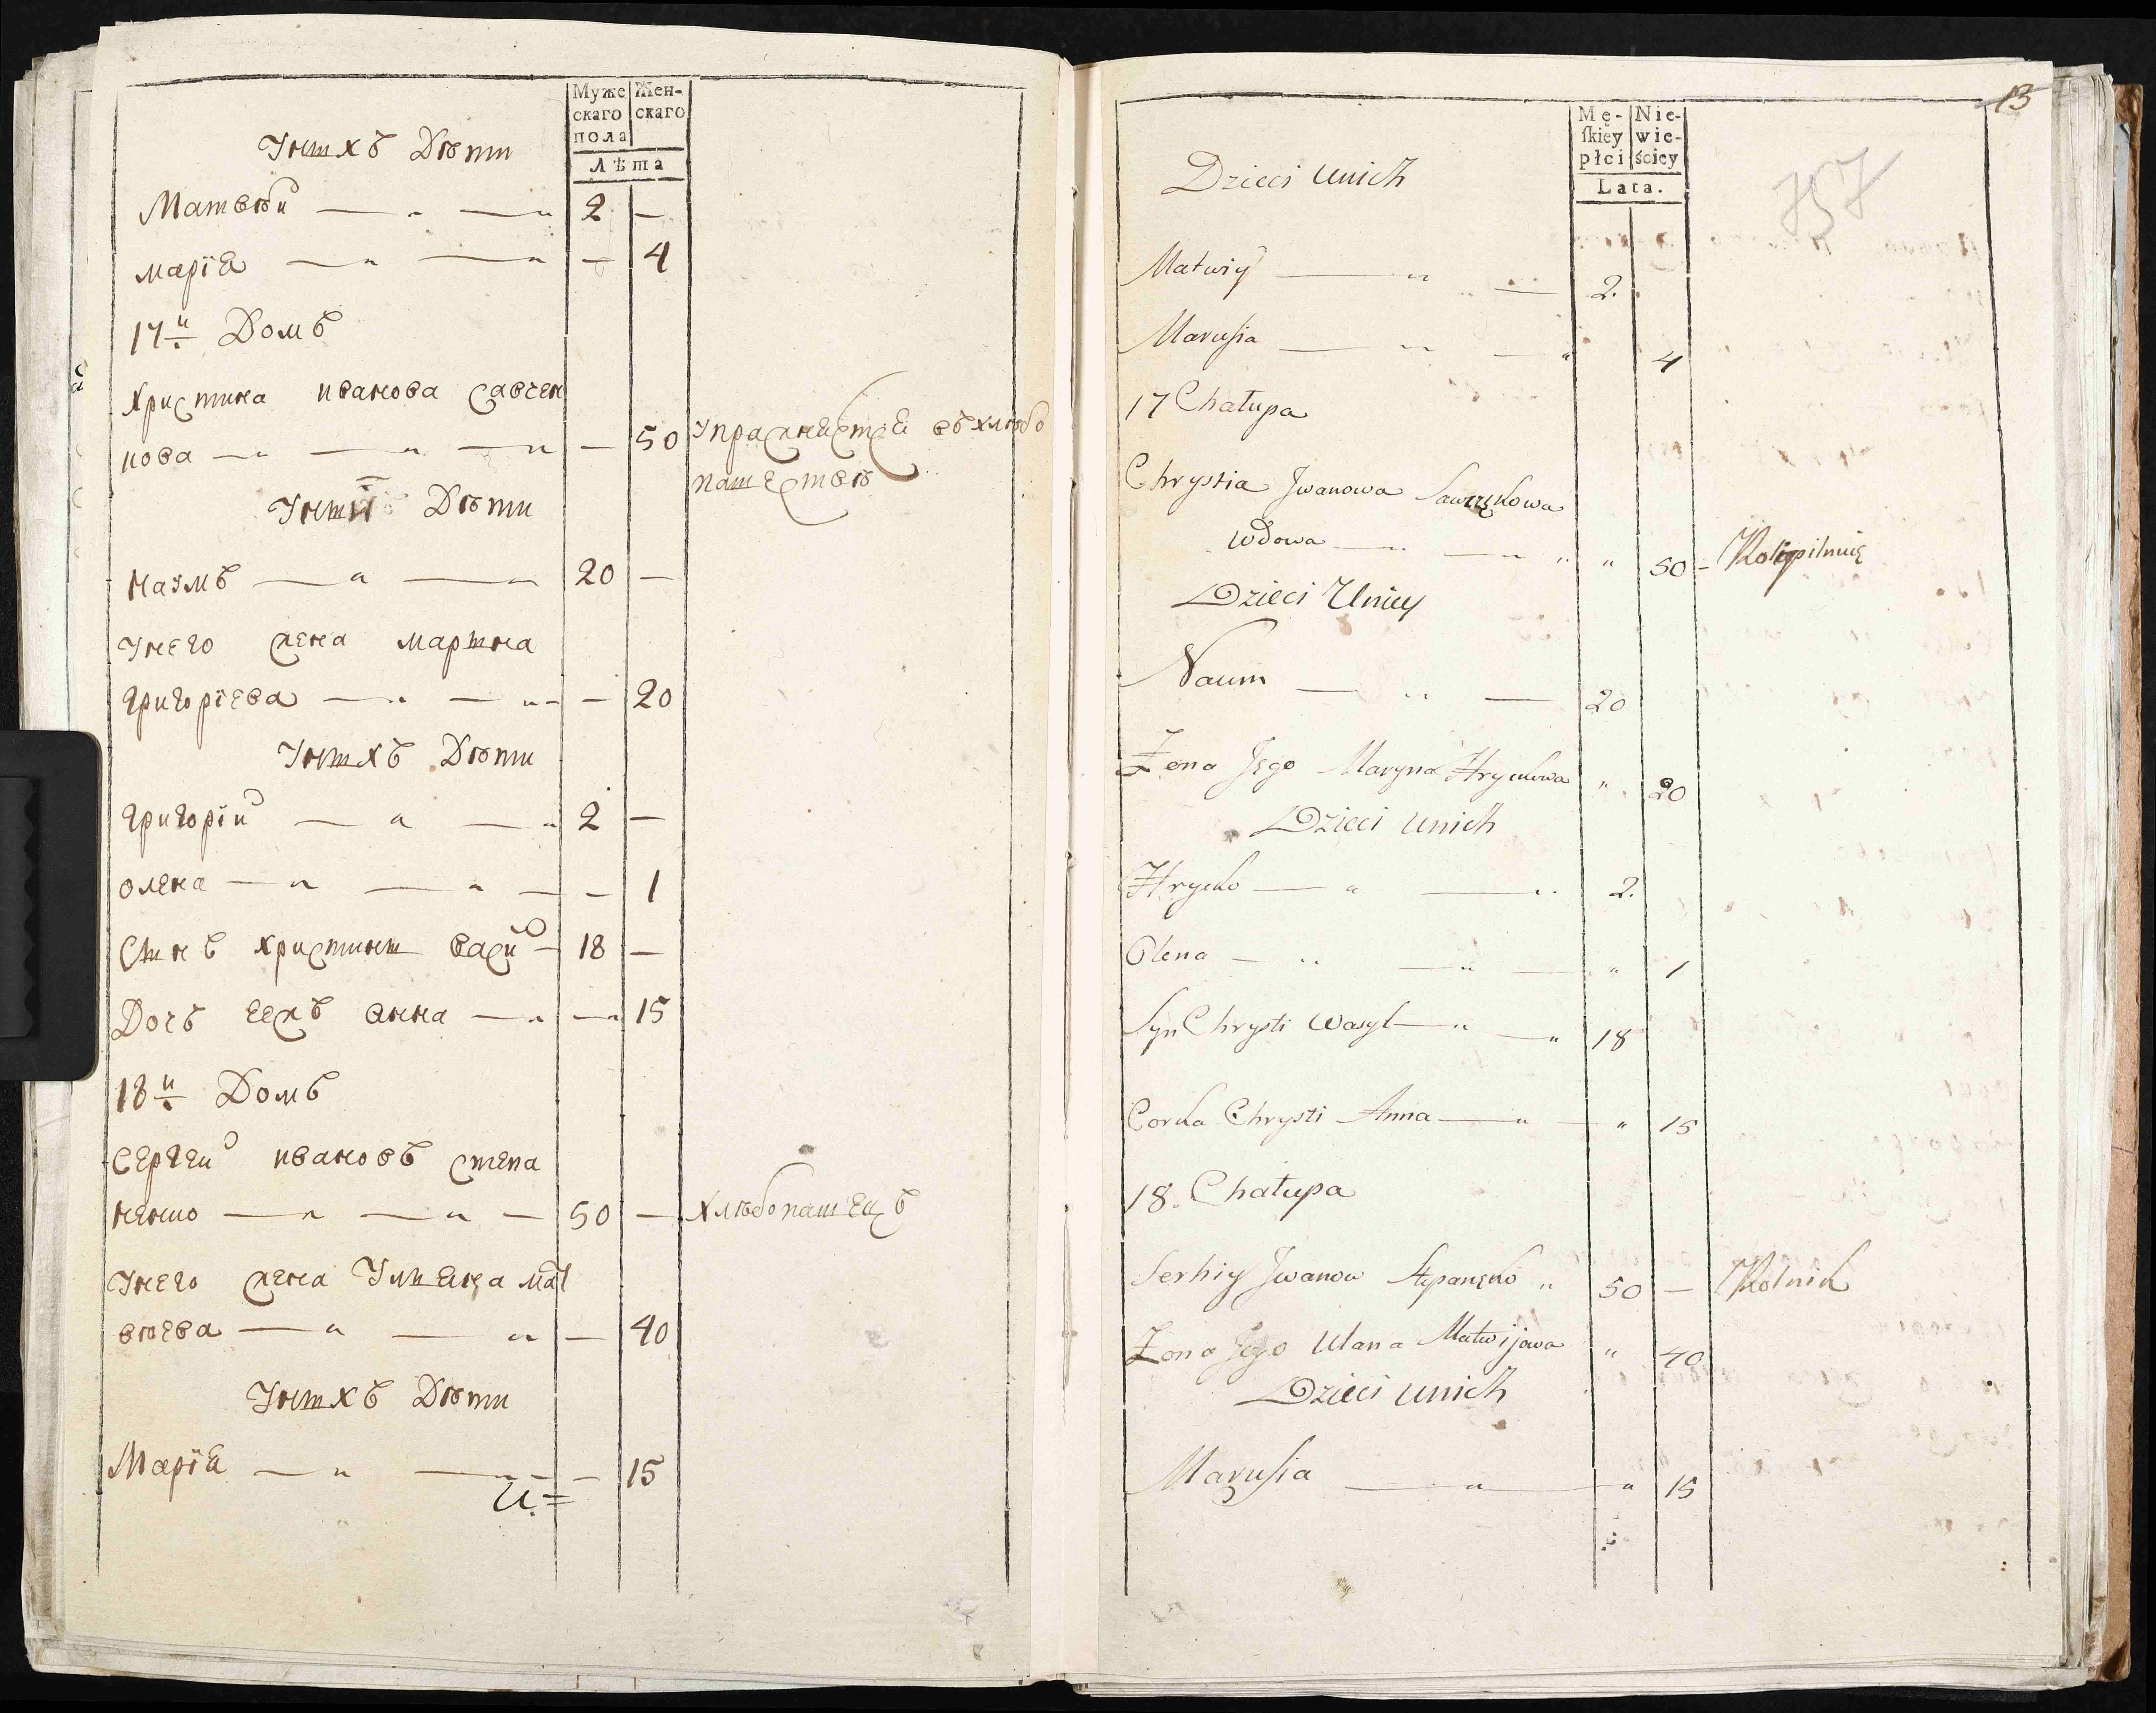 Муже
скаго
пола
Жен-
скаго
Лѣта
Унихъ Дѣти
Матвѣй 2 —
марїя — 4
17й Домъ
христина иванова савчен
кова — 50 упражняется въ хлѣбо
пашествѣ
Унїй Дѣти
наумъ 20 —
унего жена марина
григорїева — 20
Унихъ Дѣти
григорїй 2 —
олена — 1
Синъ христини васи 18 —
Дочъ еежъ анна — 15
18й Домъ
Сергей ивановъ степа
ненко 50 — хлѣбопашецъ
унего жена Уляна мат
вѣева — 40
Унихъ Дѣти
Марїя — 15
И.
Mę-
ſkiey
płci
Nie-
wie-
ściey
Lata.
13
757
Dzieci unich
Matwiy 2.
Marusia 4
17 Chałupa
Chrystia Jwanowa Sawczękowa
wdowa " 50 – Rolępilnuię
Dzieci Uniey
Naum 20
Żona Jego Maryna Hryckowa " 20
Dzieci unich
Hrycko 2.
Olena " 1
Syn Chrysti Wasyl 18
Corka Chrysti Anna " 15
18. Chałupa
Serhiy Jwanow Stepanęko " 50 — Rolnik
Żona Jego Ulana Matwijowa " 40
Dzieci unich
Marusia " 15